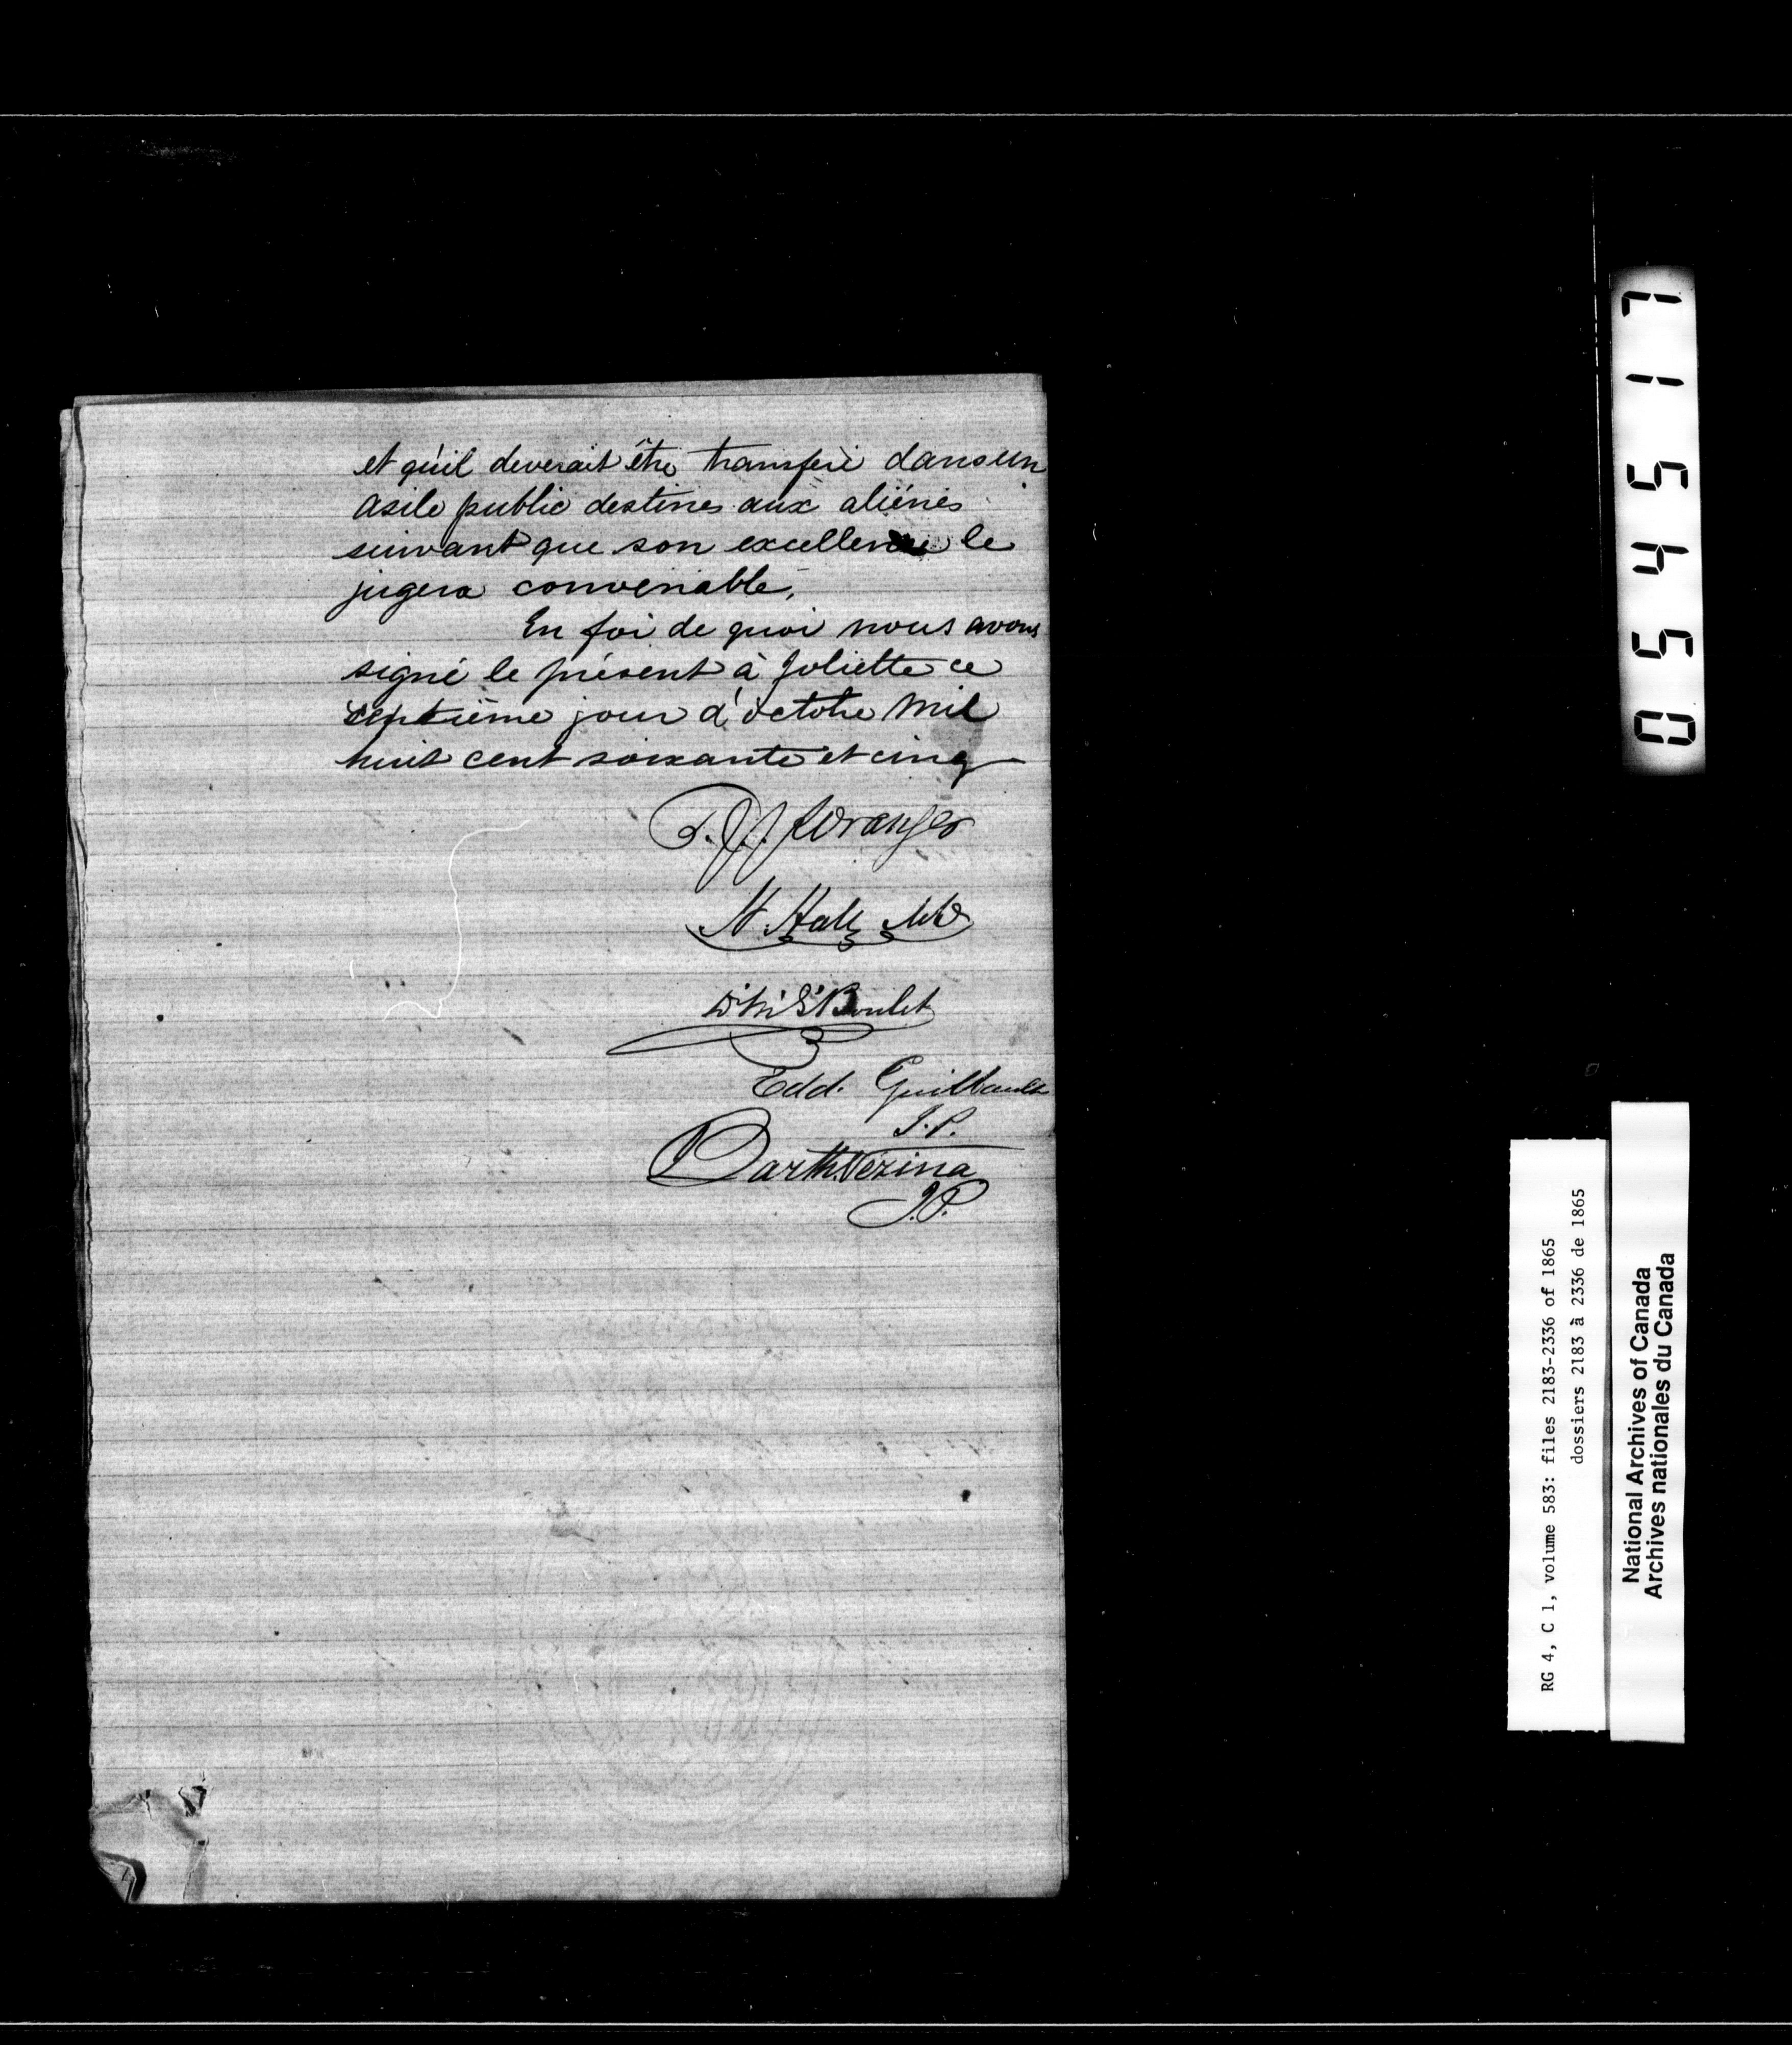 et qu'il deverait être transferé dans un
asile public destines aux aliénés
suivant que son excellence le
jugera convenable,
En foi de quoi nous avons
signé le présent à Joliette ce
septième jour d'octobre Mil
huit cent soixante et cinq
T. J. J. Loranger
N. Hall MD
Boulet
Edd. Guilbault
J. P.
Barth. Vezina
J. P.
054517
RG 4, C 1, volume 583: files 2183-2336 of 1865
dossiers 2183 à 2336 de 1865
National Archives of Canada
Archives nationales du Canada